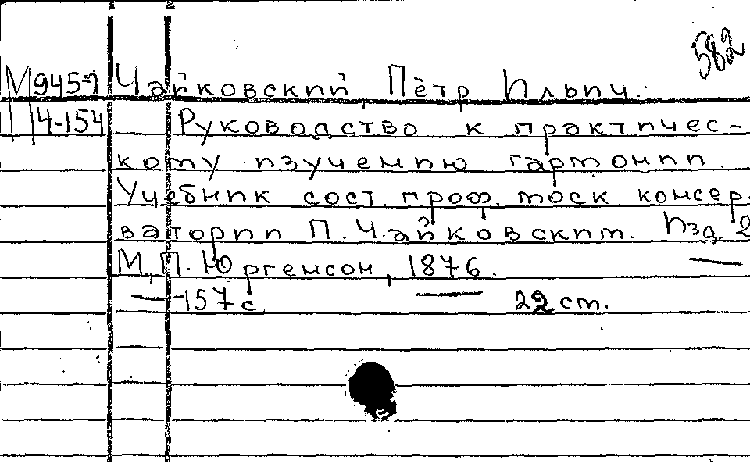 582
М 945-7 Чайковский, Пётр Ильич.
4-154 Руководство к практичес-
кому изучению гармонии.
Учебник сост. проф. моск консер-
ватории П. Чайковским. Изд 2
М., П. Юргенсон, 1876.
157 с. 22 см.